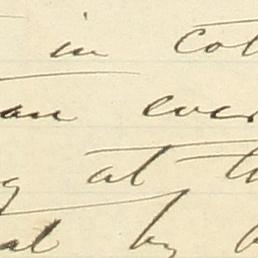 in col
an ever
g at th
al by